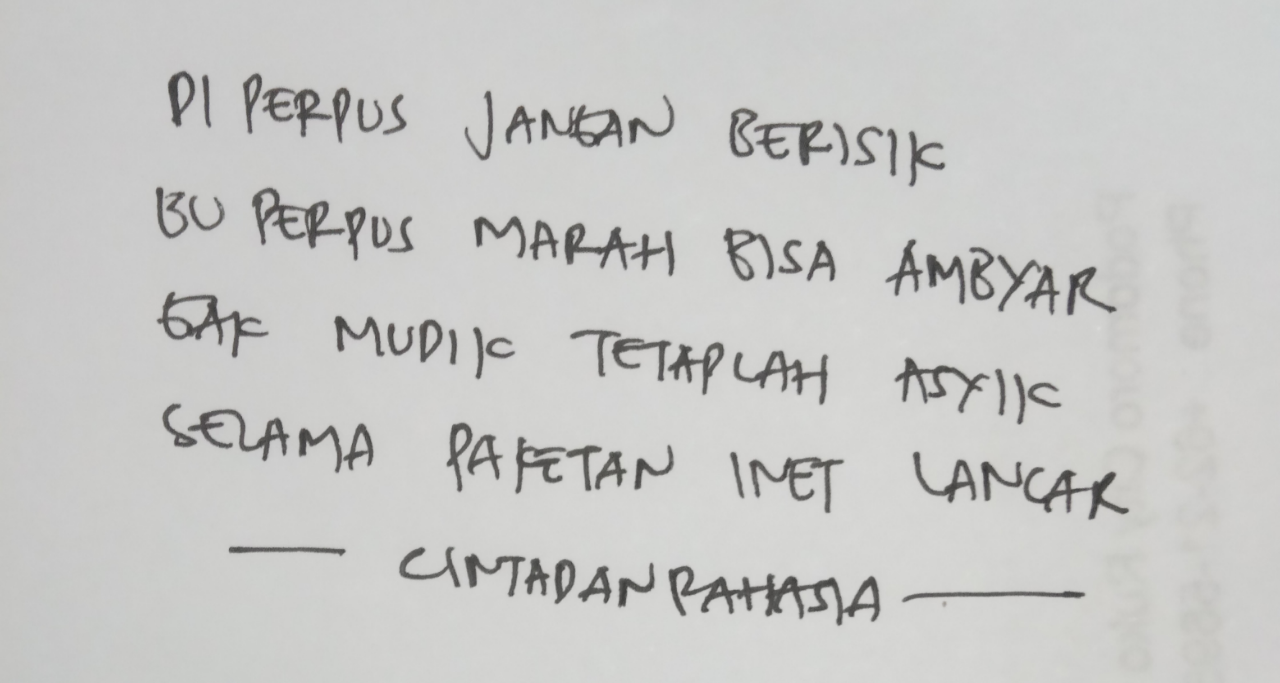 DI PERPUS JANGAN BERISIK
BU PERPUS MARAH BISA AMBYAR
GAK MUDIK TETAPLAH ASYIK
SELAMA PAKETAN INET LANCAR
— CINTADANRAHASIA —